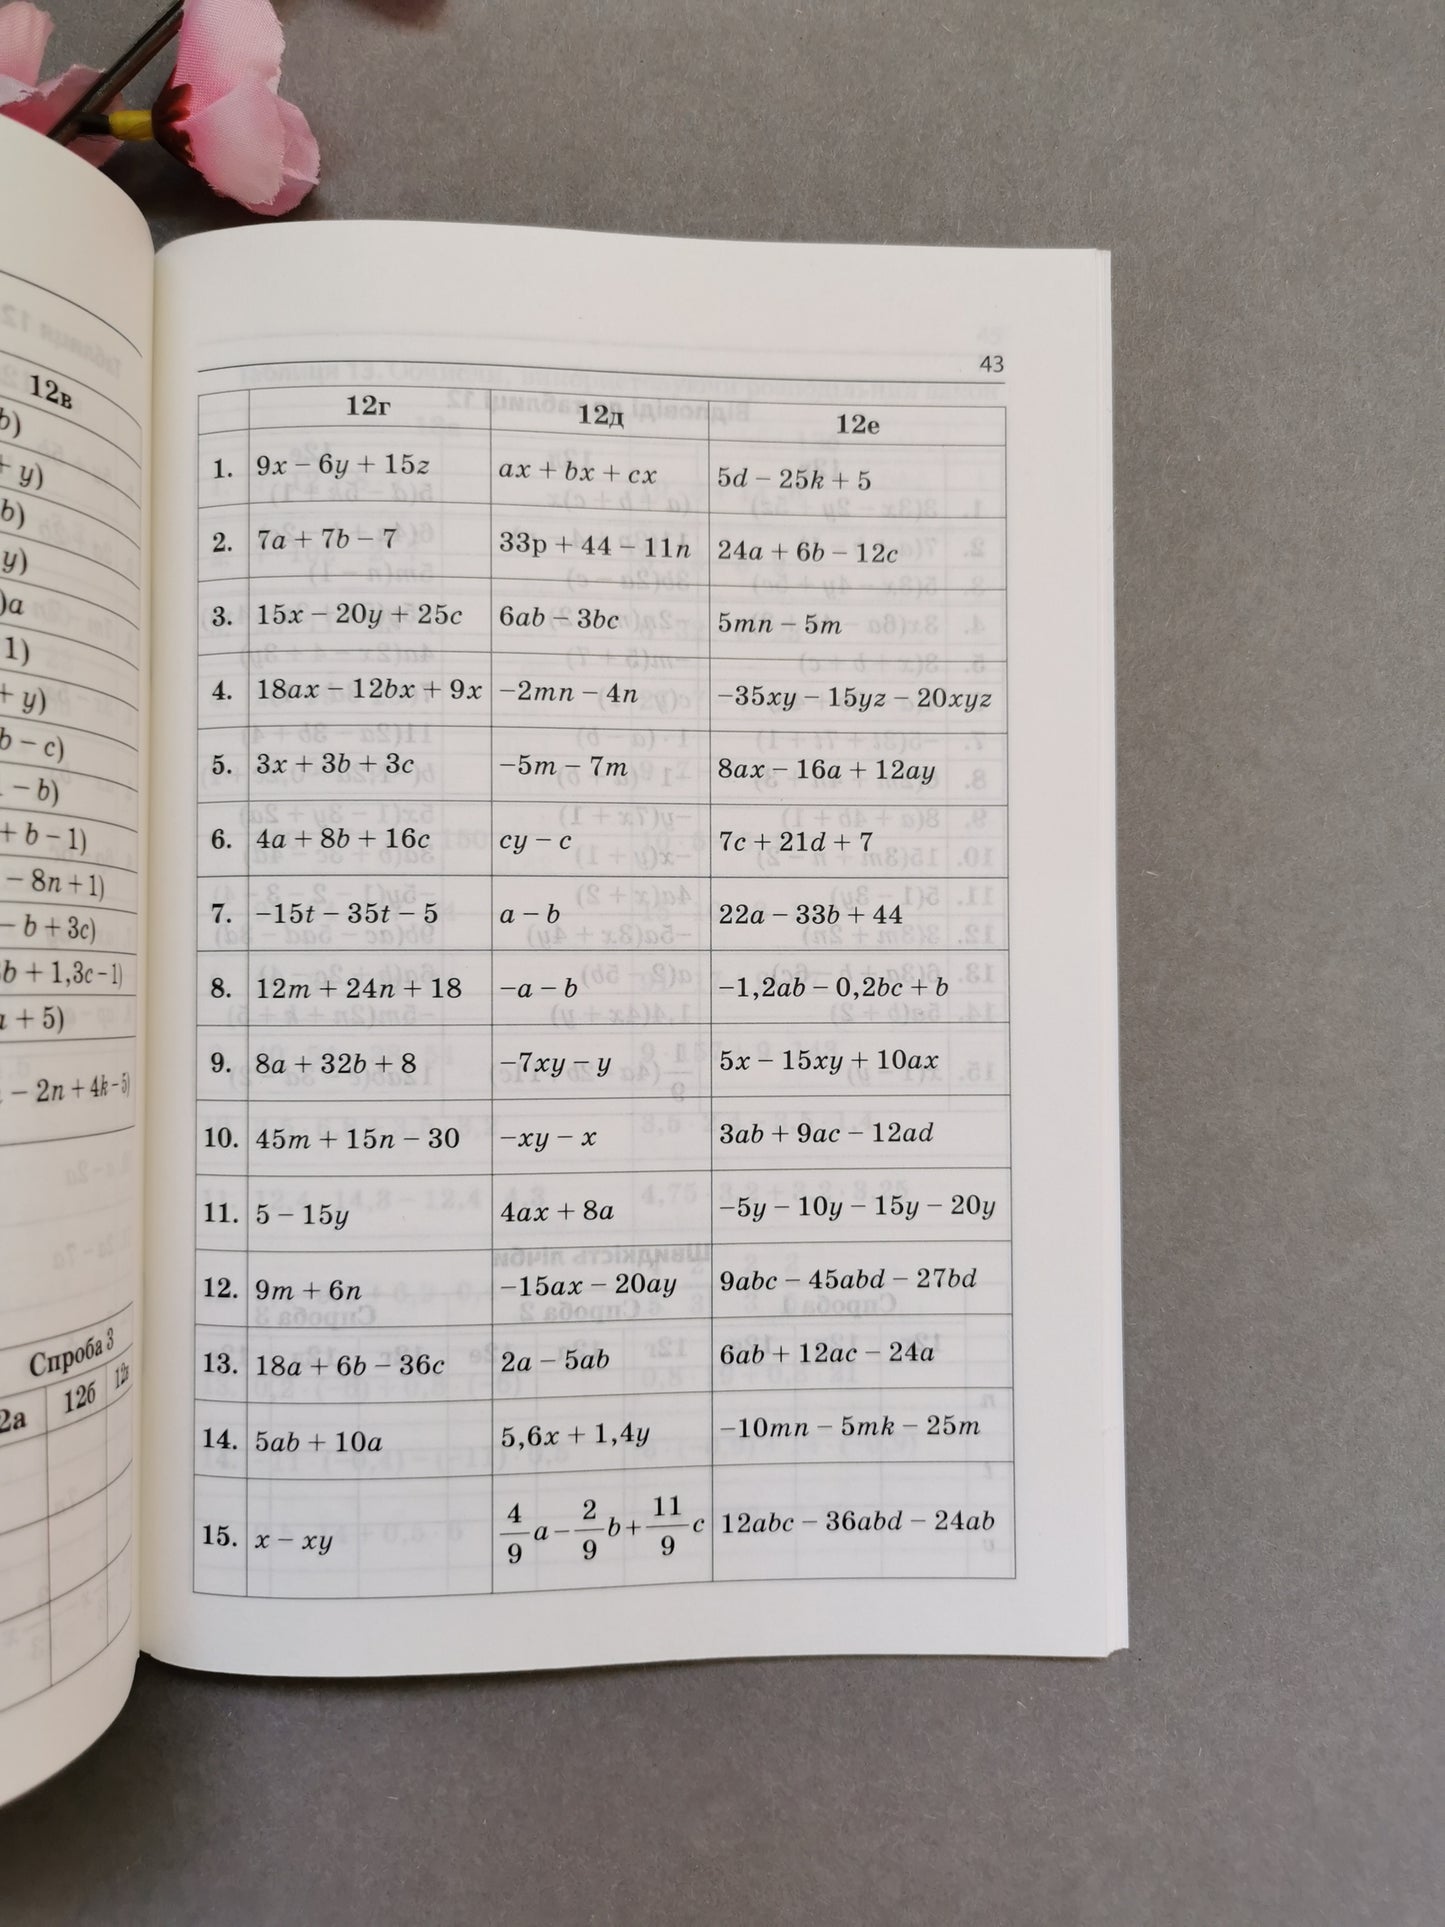 12в
b)
+ y)
b)
y)
)a
1)
+ y)
b – c)
– b)
+ b – 1)
– 8n + 1)
– b + 3c)
b + 1,3c – 1)
a + 5)
– 2n + 4k – 5)
Спроба 3
2а 12б 12в
43
12г 12д 12е
1. 9x – 6y + 15z ax + bx + cx 5d – 25k + 5
2. 7a + 7b – 7 33p + 44 – 11n 24a + 6b – 12c
3. 15x – 20y + 25c 6ab – 3bc 5mn – 5m
4. 18ax – 12bx + 9x –2mn – 4n –35xy – 15yz – 20xyz
5. 3x + 3b + 3c –5m – 7m 8ax – 16a + 12ay
6. 4a + 8b + 16c cy – c 7c + 21d + 7
7. –15t – 35t – 5 a – b 22a – 33b + 44
8. 12m + 24n + 18 –a – b –1,2ab – 0,2bc + b
9. 8a + 32b + 8 –7xy – y 5x – 15xy + 10ax
10. 45m + 15n – 30 –xy – x 3ab + 9ac – 12ad
11. 5 – 15y 4ax + 8a –5y – 10y – 15y – 20y
12. 9m + 6n –15ax – 20ay 9abc – 45abd – 27bd
13. 18a + 6b – 36c 2a – 5ab 6ab + 12ac – 24a
14. 5ab + 10a 5,6x + 1,4y –10mn – 5mk – 25m
15. x – xy 4/9 a – 2/9 b + 11/9 c 12abc – 36abd – 24ab